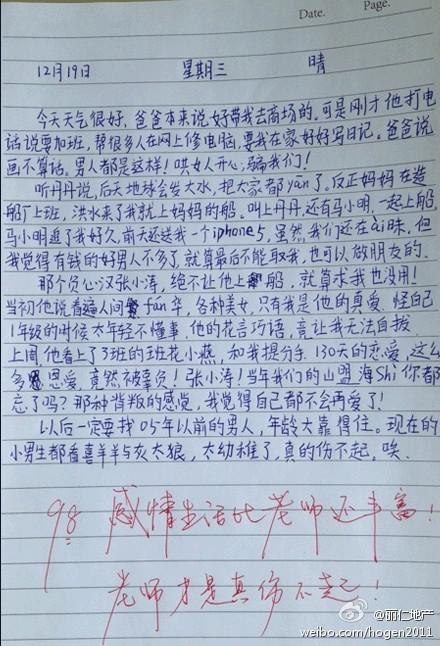 Date.
Page.
12月19日 星期三 晴
今天天气很好,爸爸本来说好带我去商场的。可是刚才他打电
话说要加班,帮很多人在网上修电脑,要我在家好好写日记。爸爸说
画不算话。男人都是这样!哄女人开心,骗我们!
听丹丹说,后天地球会发大水,把大家都yān了。反正妈妈在造
船厂上班,洪水来了我就上妈妈的船。叫上丹丹,还有马小明,一起上船。
马小明追了我好久,前天还送我一个iphone5,虽然我们还在ài昧,但
我觉得有钱的好男人不多了,就算最后不能取我,也可以做朋友的。
那个负心汉张小涛,绝不让他上船,就算求我也没用!
当初他说看遍人间fán华,各种美女,只有我是他的真爱。怪自己
1年级的时候太年轻不懂事,他的花言巧语,竟让我无法自拔
上周他看上了3班的班花小燕,和我提分手。130天的恋爱,这么
多恩爱,竟然被辜负!张小涛!当年我们的山盟海Shì你都
忘了吗?那种背叛的感觉,我觉得自己都不会再爱了!
以后一定要找05年以前的男人,年龄大靠得住。现在的
小男生都看喜羊羊与灰太狼,太幼稚了,真的伤不起,唉
98 感情生活比老师还丰富!
老师才是真伤不起!
@丽仁地产
weibo.com/hogen2011